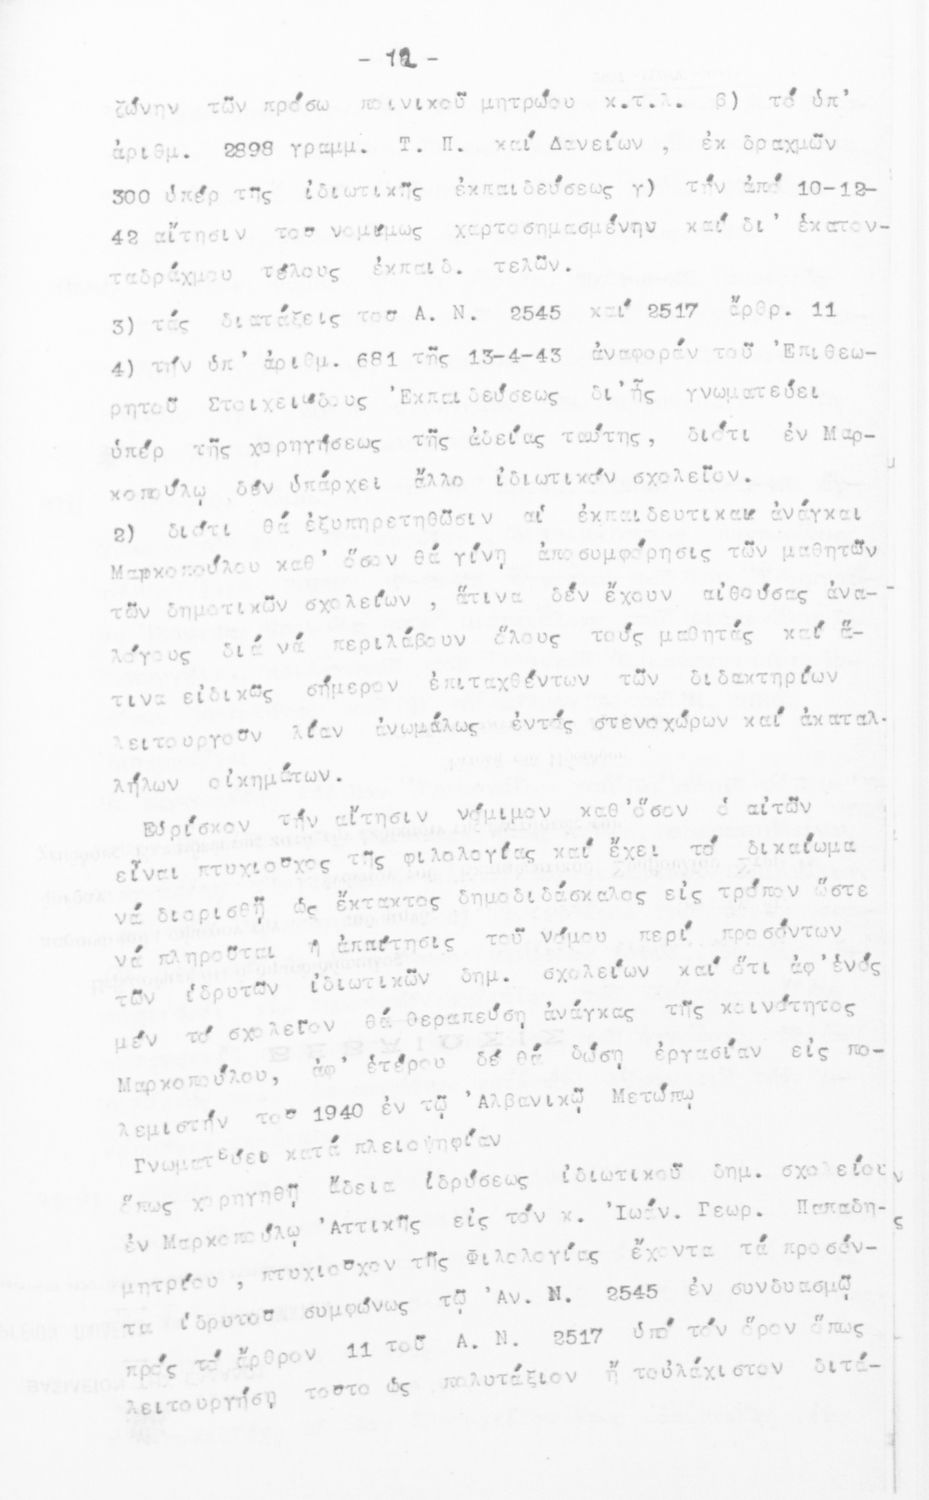 - 12 -
ζώνην τῶν πρόσω ποινικοῦ μητρώου κ.τ.λ. β) τό ὑπ'
ἀριθμ. 2898 γραμμ. Τ. Π. καί Δανείων , ἐκ δραχμῶν
300 ὑπέρ τῆς ἰδιωτικῆς ἐκπαιδεύσεως γ) τήν ἀπό 10-12-
42 αἴτησιν του νομίμως χαρτοσημασμένην καί δι' ἑκατον-
ταδράχμου τέλους ἐκπαιδ. τελῶν.
3) τάς διατάξεις του Α. Ν. 2545 καί 2517 ἄρθρ. 11
4) τήν ὑπ' ἀριθμ. 681 τῆς 13-4-43 ἀναφοράν τοῦ 'Επιθεω-
ρητοῦ Στοιχειώδους 'Εκπαιδεύσεως δι'ἧς γνωματεύει
ὑπέρ τῆς χορηγήσεως τῆς ἀδείας ταύτης, διότι ἐν Μαρ-
κοπούλῳ δέν ὑπάρχει ἄλλο ἰδιωτικόν σχολεῖον.
2) διότι θά ἐξυπηρετηθῶσιν αἱ ἐκπαιδευτικαι ἀνάγκαι
Μαρκοπούλου καθ' ὅσον θά γίνῃ ἀποσυμφόρησις τῶν μαθητῶν
τῶν δημοτικῶν σχολείων , ἅτινα δέν ἔχουν αἰθούσας ἀνα-
λόγους διά νά περιλάβουν ὅλους τούς μαθητάς καί ἅ-
τινα εἰδικῶς σήμερον ἐπιταχθέντων τῶν διδακτηρίων
λειτουργοῦν λίαν ἀνωμάλως ἐντός στενοχώρων καί ἀκαταλ-
λήλων οἰκημάτων.
Εὑρίσκον τήν αἴτησιν νόμιμον καθ'ὅσον ὁ αἰτῶν
εἶναι πτυχιοῦχος τῆς φιλολογίας καί ἔχει τό δικαίωμα
νά διορισθῇ ὡς ἔκτακτος δημοδιδάσκαλος εἰς τρόπον ὥστε
νά πληροῦται ἡ ἀπαίτησις τοῦ νόμου περί προσόντων
τῶν ἱδρυτῶν ἰδιωτικῶν δημ. σχολείων καί ὅτι ἀφ'ἑνός
μέν τό σχολεῖον θά θεραπεύσῃ ἀνάγκας τῆς κοινότητος
Μαρκοπούλου, ἀφ' ἑτέρου δέ θά δώσῃ ἐργασίαν εἰς πο-
λεμιστήν του 1940 ἐν τῷ 'Αλβανικῷ Μετώπῳ
Γνωματεύει κατά πλειοψηφίαν
ὅπως χορηγηθῇ ἄδεια ἱδρύσεως ἰδιωτικοῦ δημ. σχολείου
ἐν Μαρκοπούλῳ 'Αττικῆς εἰς τόν κ. 'Ιωάν. Γεωρ. Παπαδη-
μητρίου , πτυχιοῦχον τῆς Φιλολογίας ἔχοντα τά προσόν-
τα ἱδρυτοῦ συμφώνως τῷ 'Αν. Ν. 2545 ἐν συνδυασμῷ
πρός τό ἄρθρον 11 τοῦ Α. Ν. 2517 ὑπό τόν ὅρον ὅπως
λειτουργήσῃ τοῦτο ὡς πολυτάξιον ἤ τοὐλάχιστον διτά-